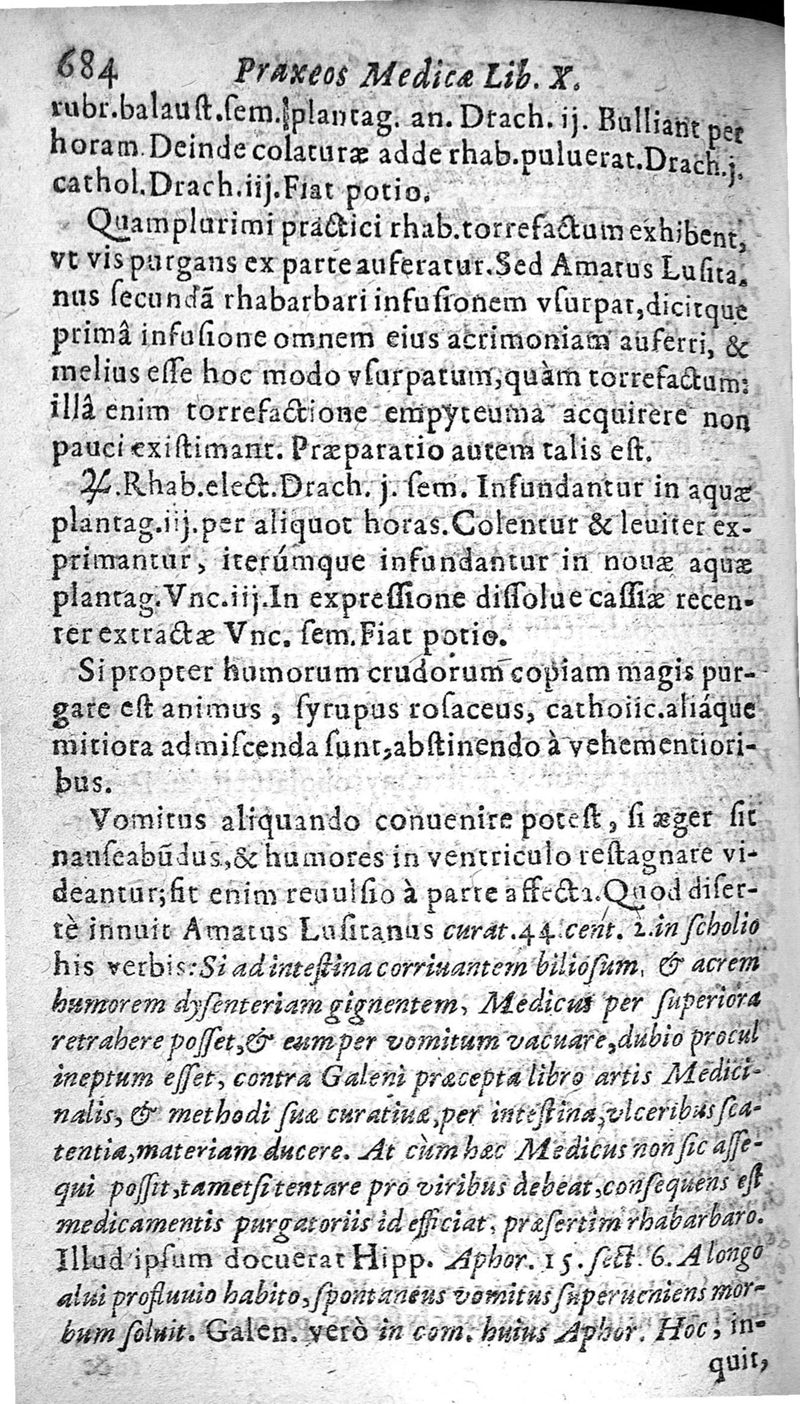 684 Praxeos Medicæ Lib. X.
rubr.balaust.sem.plantag. an. Drach. ij. Bulliant per
horam.Deinde colaturæ adde rhab.puluerat.Drach.j.
cathol.Drach.iij.Fiat potio.
Quamplurimi practici rhab.torrefactum exhibent,
vt vis purgans ex parte auferatur.Sed Amatus Lusita-
nus secundã rhabarbari infusionem vsurpat,dicitque
primâ infusione omnem eius acrimoniam auferri, &
melius esse hoc modo vsurpatum,quàm torrefactum:
illâ enim torrefactione empyteuma acquirere non
pauci existimant. Præparatio autem talis est.
℞.Rhab.elect.Drach. j. sem. Infundantur in aquæ
plantag.iij.per aliquot horas.Colentur & leuiter ex-
primantur, iterúmque infundantur in nouæ aquæ
plantag.Vnc.iij.In expressione dissolue cassiæ recen-
ter extractæ Vnc. sem.Fiat potio.
Si propter humorum crudorum copiam magis pur-
gare est animus, syrupus rosaceus, cathoiic.aliáque
mitiora admiscenda sunt,abstinendo à vehementiori-
bus.
Vomitus aliquando conuenire potest, si æger sit
nauseabũdus,& humores in ventriculo restagnare vi-
deantur;fit enim reuulsio à parte affecta.Quod diser-
tè innuit Amatus Lusitanus curat.44.cent. 2.in scholio
his verbis:Si ad intestina corriuantem biliosum, & acrem
humorem dysenteriam gignentem, Medicus per superiora
retrahere posset,& eum per vomitum vacuare,dubio procul
ineptum esset, contra Galeni præcepta libro artis Medici-
nalis, & methodi suæ curatiuæ,per intestina,vlceribus sca-
tentia,materiam ducere. At cùm hæc Medicus non sic asse-
qui possit,tametsi tentare pro viribus debeat,consequens est
medicamentis purgatoriis id efficiat, præsertim rhabarbaro.
Illud ipsum docuerat Hipp. Aphor. 15. sect. 6. A longo
alui profluuio habito,spontaneus vomitus superueniens mor-
bum soluit. Galen. verò in com. huius Aphor. Hoc, in-
quit,